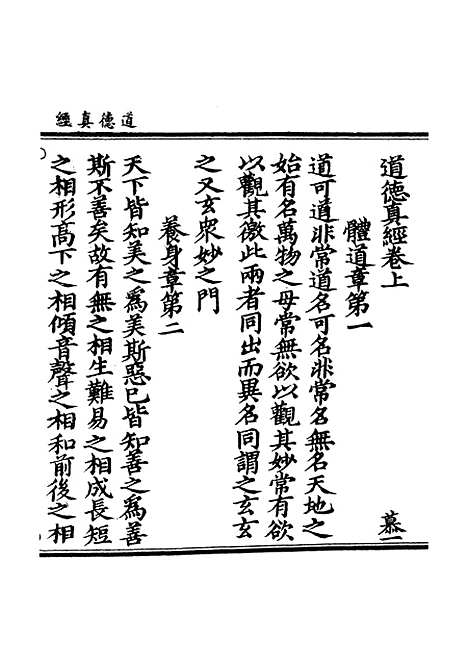 道德真經
道德真經卷上
慕一
體道章第一
道可道非常道名可名非常名無名天地之
始有名萬物之母常無欲以觀其妙常有欲
以觀其徼此兩者同出而異名同謂之玄玄
之又玄衆妙之門
養身章第二
天下皆知美之爲美斯惡已皆知善之爲善
斯不善矣故有無之相生難易之相成長短
之相形高下之相傾音聲之相和前後之相